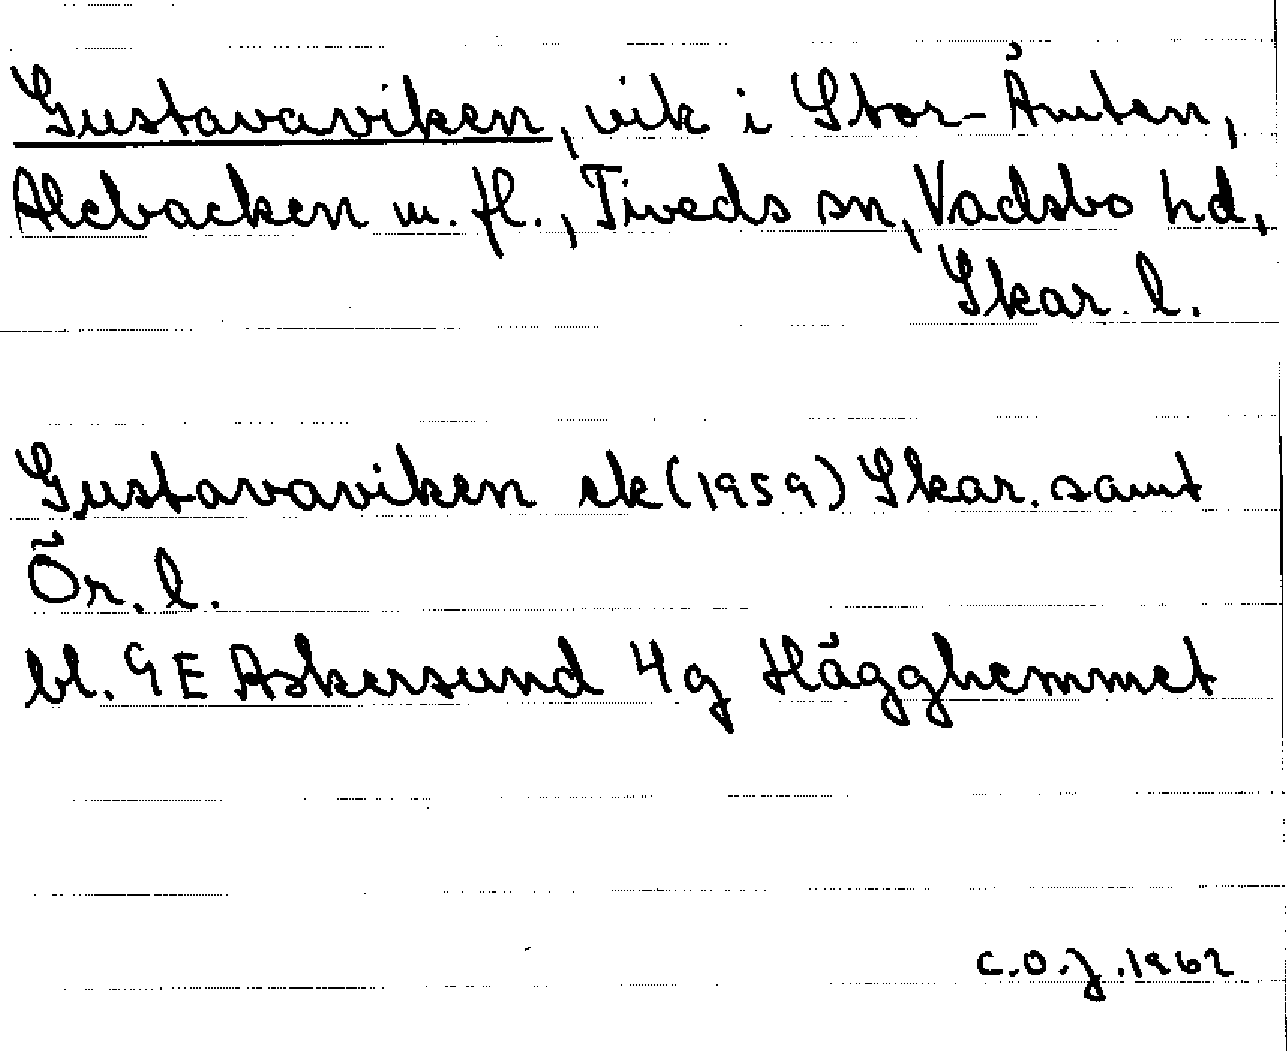 Gustavaviken, vik i Stor-Ämten,
Alebacken m. fl., Tiveds sn, Vadsbo hd,
Skar. l.
Gustavaviken ek (1959) Skar. samt
Ör. l.
bl. 9E Askersund 4g Hägghemmet
C.O.J. 1962